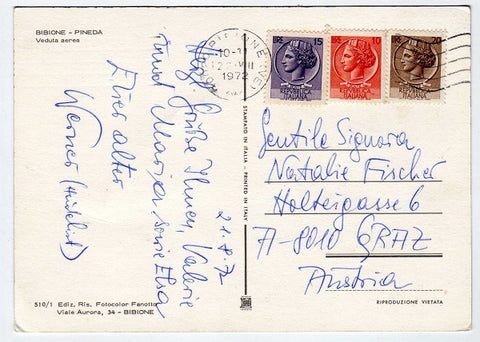 BIBIONE - PINEDA
Veduta aerea
BIBIONE (VE)
10-11
1972
LIRE 15
REPUBBLICA
ITALIANA
LIRE
REPUBBLICA
ITALIANA
LIRE 20
REPUBBLICA
ITALIANA
21.8.72
Herzl. Grüße Ihnen, Valerie
und Marian, sowie Elsa
Euer alter
Werner
STAMPATO IN ITALIA - PRINTED IN ITALY
Gentile Signora
Natalie Fischer
Holteigasse 6
A-8010 GRAZ
Austria
510/1 Ediz. Ris. Fotocolor Fanotto
Viale Aurora, 34 - BIBIONE
RIPRODUZIONE VIETATA